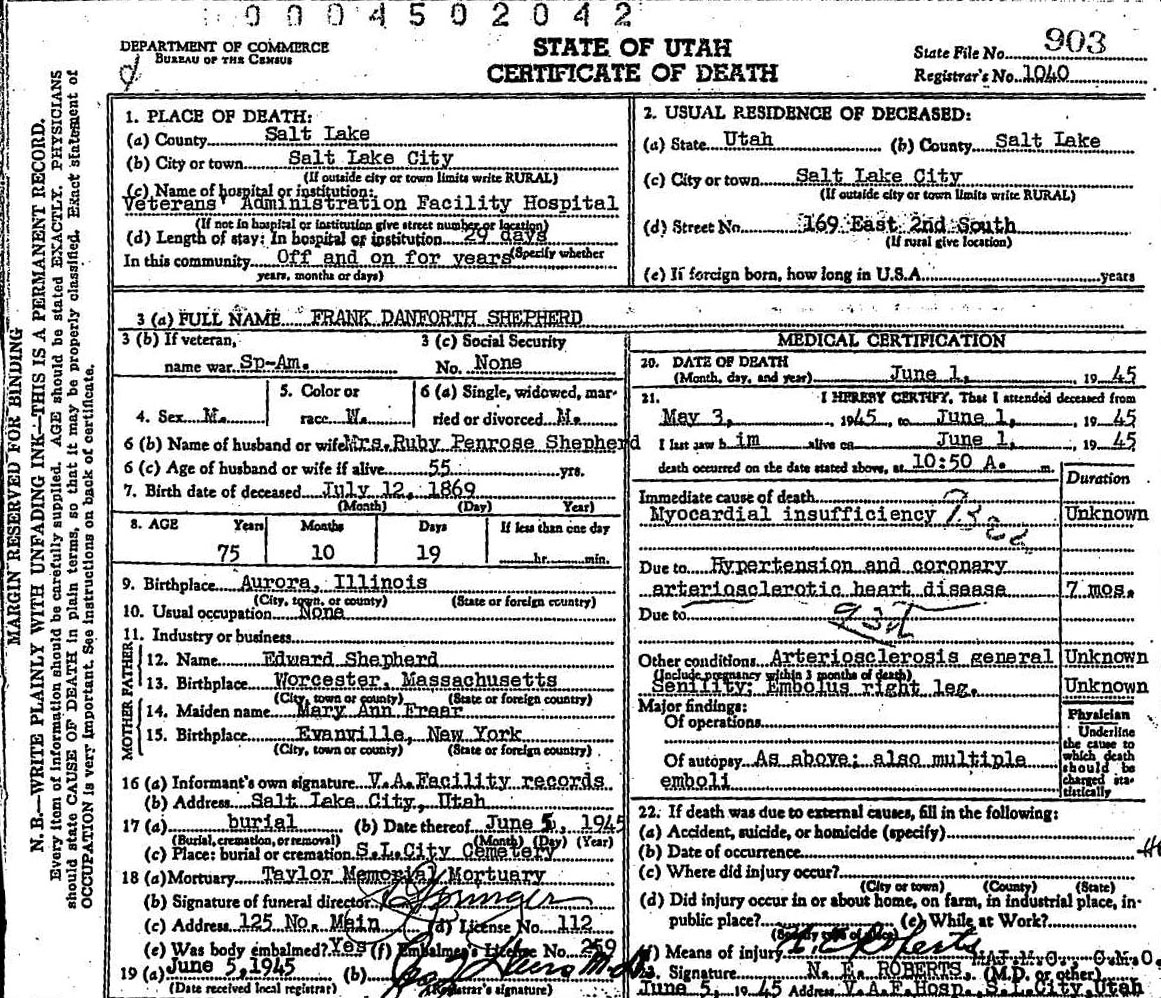 0004502042
DEPARTMENT OF COMMERCE
BUREAU OF THE CENSUS
STATE OF UTAH
CERTIFICATE OF DEATH
State File No. 903
Registrar's No. 1040
MARGIN RESERVED FOR BINDING
N. B.—WRITE PLAINLY WITH UNFADING INK—THIS IS A PERMANENT RECORD.
Every item of information should be carefully supplied. AGE should be stated EXACTLY. PHYSICIANS
should state CAUSE OF DEATH in plain terms, so that it may be properly classified. Exact statement of
OCCUPATION is very important. See instructions on back of certificate.
1. PLACE OF DEATH:
(a) County Salt Lake
(b) City or town Salt Lake City
(If outside city or town limits write RURAL)
(c) Name of hospital or institution:
Veterans' Administration Facility Hospital
(If not in hospital or institution give street number or location)
(d) Length of stay: In hospital or institution 29 days
(Specify whether
In this community Off and on for years
years, months or days)
2. USUAL RESIDENCE OF DECEASED:
(a) State Utah (b) County Salt Lake
(c) City or town Salt Lake City
(If outside city or town limits write RURAL)
(d) Street No. 169 East 2nd South
(If rural give location)
(e) If foreign born, how long in U.S.A. years
3 (a) FULL NAME FRANK DANFORTH SHEPHERD
3 (b) If veteran, name war Sp-Am.
3 (c) Social Security No. None
4. Sex M.
5. Color or race W.
6 (a) Single, widowed, married or divorced M.
6 (b) Name of husband or wife Mrs. Ruby Penrose Shepherd
6 (c) Age of husband or wife if alive 55 yrs.
7. Birth date of deceased July 12, 1869
(Month) (Day) Year)
8. AGE Years Months Days If less than one day
75 10 19 hr. min.
9. Birthplace Aurora, Illinois
(City, town, or county) (State or foreign country)
10. Usual occupation None
11. Industry or business
FATHER
12. Name Edward Shepherd
13. Birthplace Worcester, Massachusetts
(City, town or county) (State or foreign country)
MOTHER
14. Maiden name Mary Ann Frear
15. Birthplace Evanville, New York
(City, town or county) (State or foreign country)
16 (a) Informant's own signature V.A. Facility records
(b) Address Salt Lake City, Utah
17 (a) burial (b) Date thereof June 5, 1945
(Burial, cremation, or removal) (Month) (Day) (Year)
(c) Place: burial or cremation S.L. City Cemetery
18 (a) Mortuary Taylor Memorial Mortuary
(b) Signature of funeral director
(c) Address 125 No. Main (d) License No. 112
(e) Was body embalmed? Yes (f) Embalmer's License No. 259
19 (a) June 5, 1945 (b)
(Date received local registrar) (Registrar's signature)
MEDICAL CERTIFICATION
20. DATE OF DEATH
(Month, day, and year) June 1, 19 45
21. I HEREBY CERTIFY, That I attended deceased from
May 3, 1945, to June 1, 19 45
I last saw h im alive on June 1, 19 45
death occurred on the date stated above, at 10:50 A. m.
Duration
Immediate cause of death
Myocardial insufficiency Unknown
Due to Hypertension and coronary
arteriosclerotic heart disease 7 mos.
Due to
93d
Other conditions Arteriosclerosis general Unknown
(Include pregnancy within 3 months of death)
Senility; Embolus right leg. Unknown
Major findings:
Of operations
Of autopsy As above; also multiple
emboli
Physician
Underline
the cause to
which death
should be
charged sta-
tistically
22. If death was due to external causes, fill in the following:
(a) Accident, suicide, or homicide (specify)
(b) Date of occurrence
(c) Where did injury occur?
(City or town) (County) (State)
(d) Did injury occur in or about home, on farm, in industrial place, in-
public place? (e) While at Work?
(f) Means of injury
MAJ.M.C., C.M.O.
23. Signature N. E. ROBERTS, (M.D. or other)
June 5, 19 45 Address V.A.F. Hosp., S.L. City, Utah